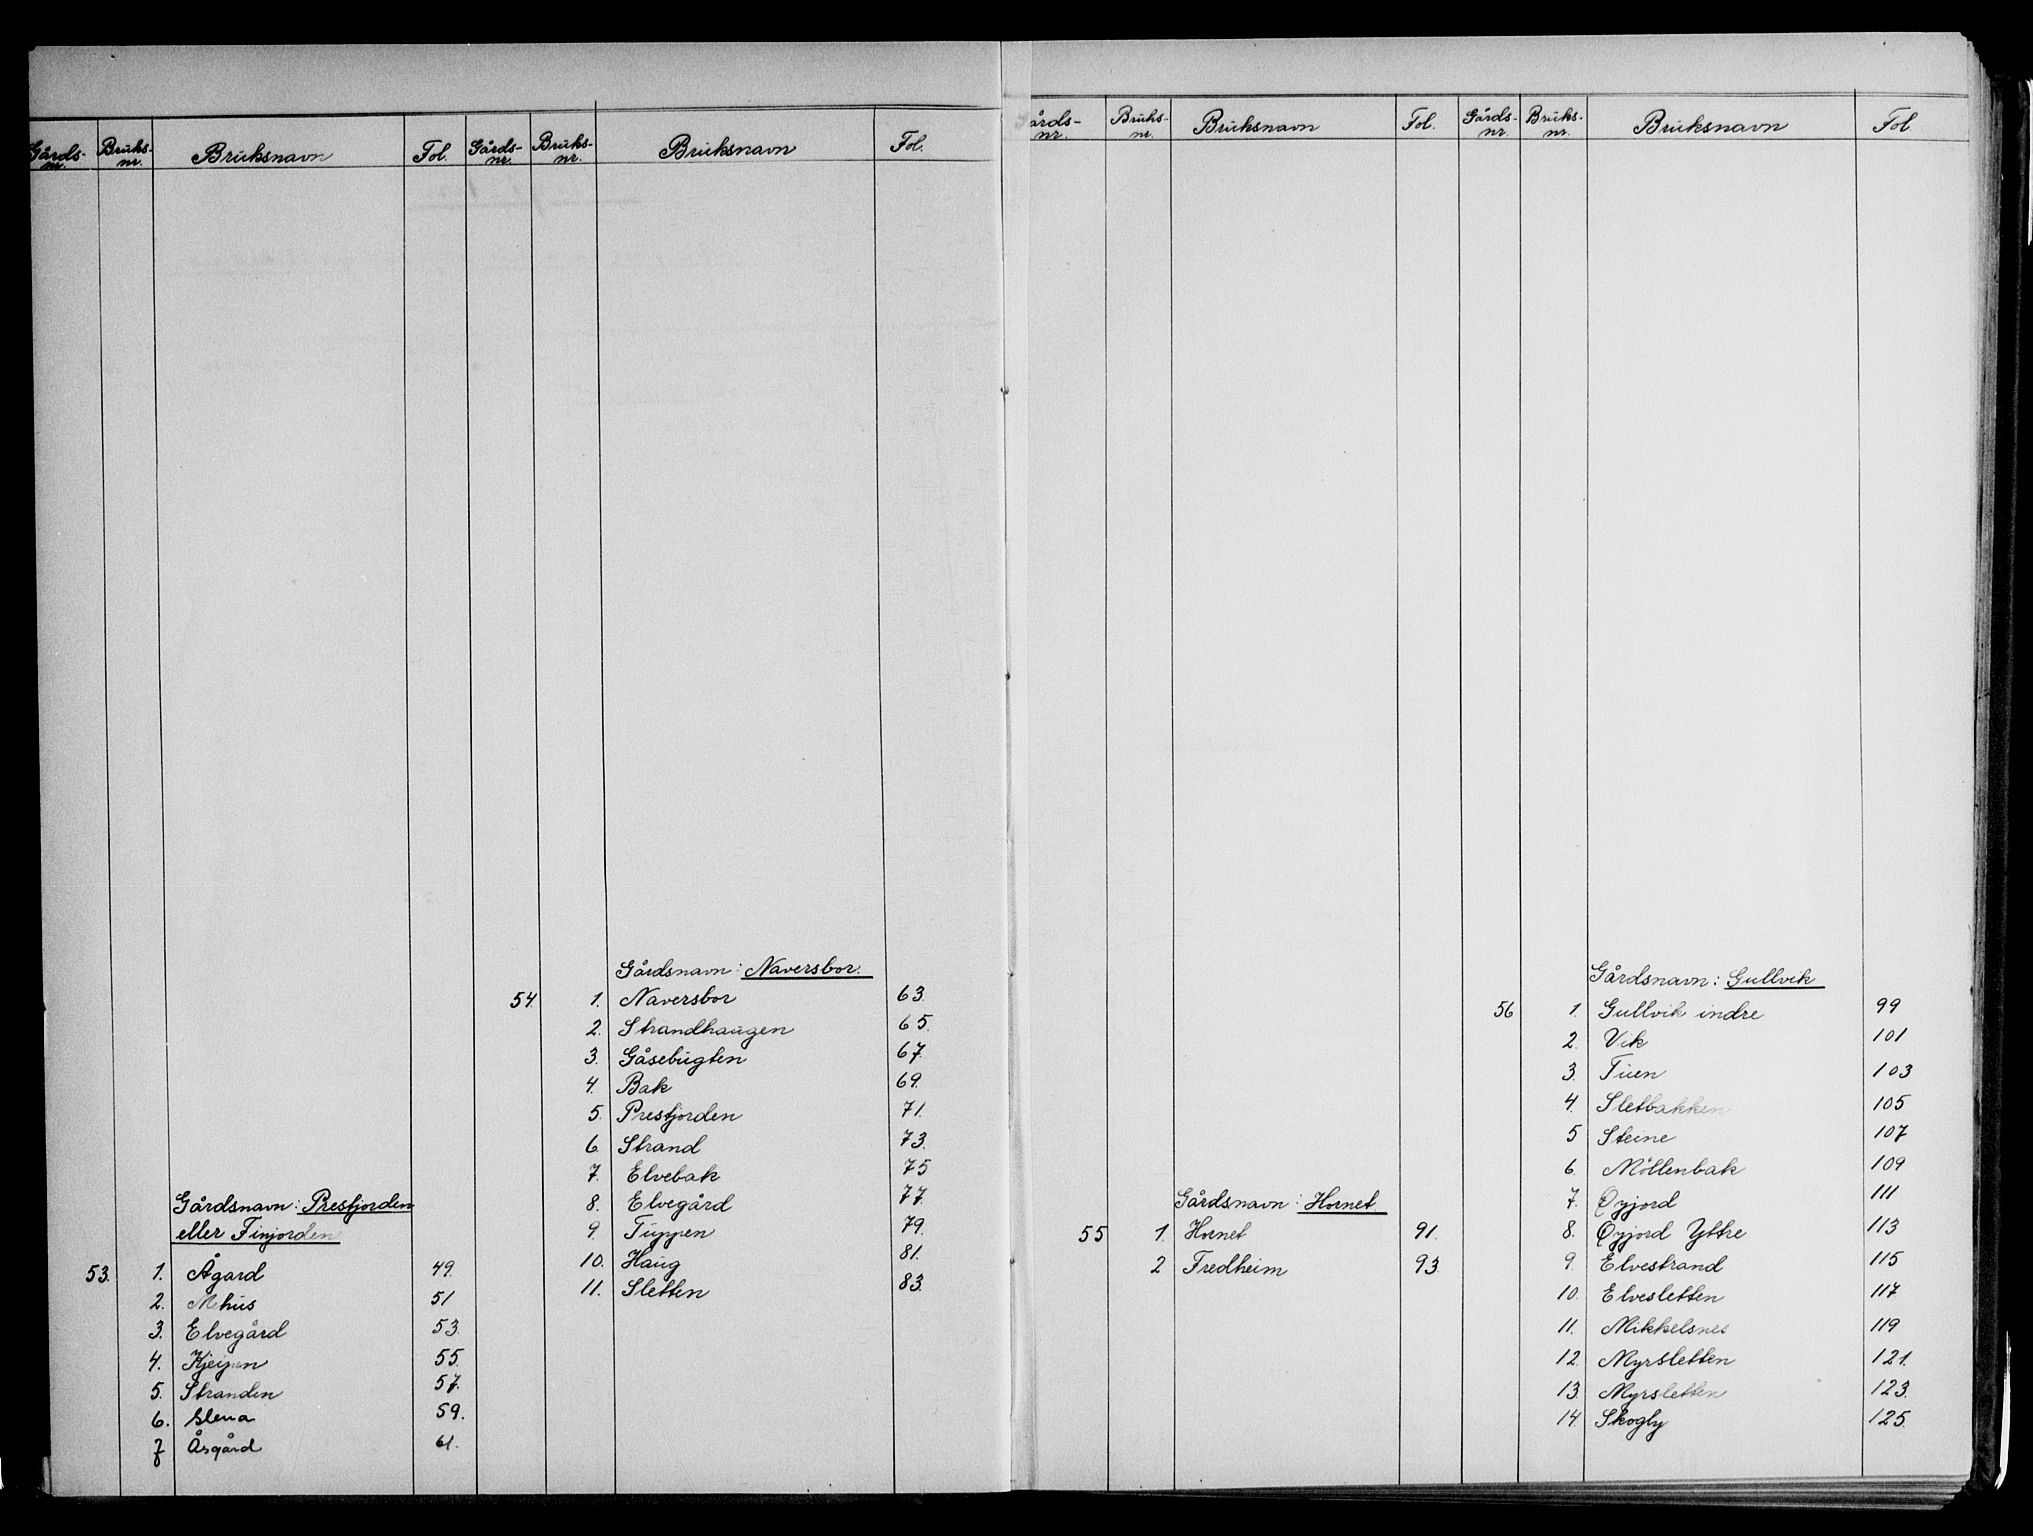 Gårds-nr. Bruks-nr. Bruksnavn Fol.
Gårdsnavn: Presfjorden
eller Finjorden
53. 1. Ågard 49.
2. Mehus 51
3. Elvegård 53
4. Kjeipen 55.
5. Stranden 57.
6. 59.
7 Åsgård 61.
Gårds-nr. Bruks-nr. Bruksnavn Fol.
Gårdsnavn: Naversbor.
54 1. Naversbor 63.
2. Strandhaugen 65.
3. Gåsebugten 67.
4. Bak 69.
5. Presfjorden 71.
6. Strand 73.
7. Elvebak 75
8. Elvegård 77.
9. Tuppen 79.
10. Haug 81.
11. Sletten 83.
årds-nr. Bruks-nr. Bruksnavn Fol.
Gårdsnavn: Hornet
55 1. Hornet 91.
2 Fredheim 93
Gårds-nr. Bruks-nr. Bruksnavn Fol
Gårdsnavn: Gullvik
56 1. Gullvik indre 99
2. Vik 101
3. Tuen 103
4. Sletbakken 105
5 Steine 107
6. Möllenbak 109
7. Øyjord 111
8. Øyjord Yttre 113
9. Elvestrand 115
10. Elvesletten 117
11. Mikkelsnes 119
12. Myrsletten 121.
13. Myrsletten 123.
14. Skogly 125